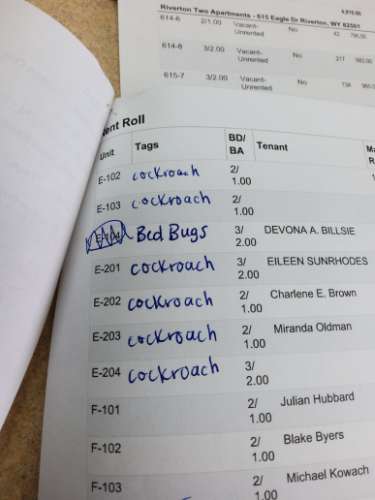 Riverton Two Apartments - 615 Eagle Dr Riverton, WY 82501
614-6 2/1.00 Vacant-Unrented No
614-8 3/2.00 Vacant-Unrented No 217
615-7 3/2.00 Vacant-Unrented No
ent Roll
Unit Tags BD/BA Tenant
E-102 cockroach 2/1.00
E-103 cockroach 2/1.00
E-104 Bed Bugs 3/2.00 DEVONA A. BILLSIE
E-201 cockroach 3/2.00 EILEEN SUNRHODES
E-202 cockroach 2/1.00 Charlene E. Brown
E-203 cockroach 2/1.00 Miranda Oldman
E-204 cockroach 3/2.00
F-101 2/1.00 Julian Hubbard
F-102 2/1.00 Blake Byers
F-103 2/1.00 Michael Kowach